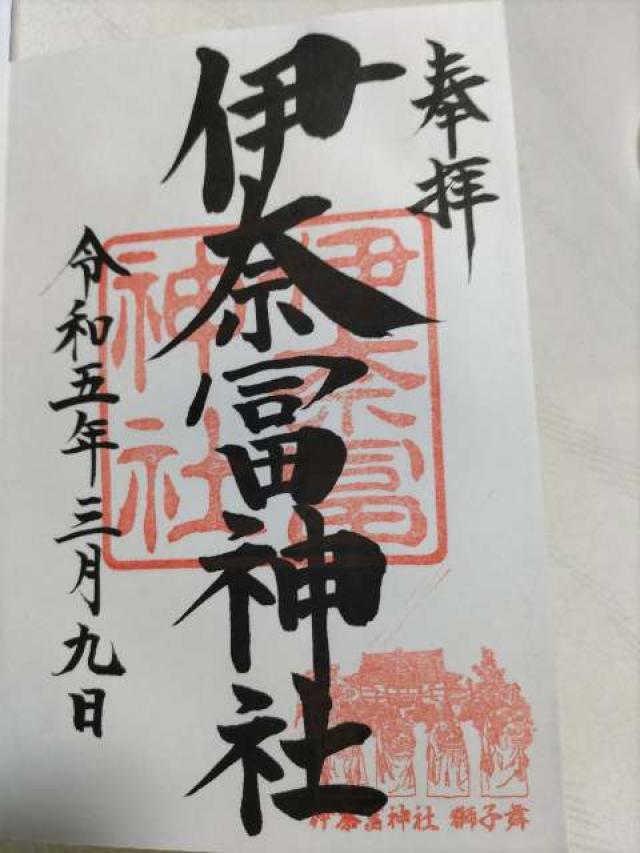 奉拝
伊奈冨神社
伊奈冨神社
令和五年三月九日
伊奈冨神社 獅子舞